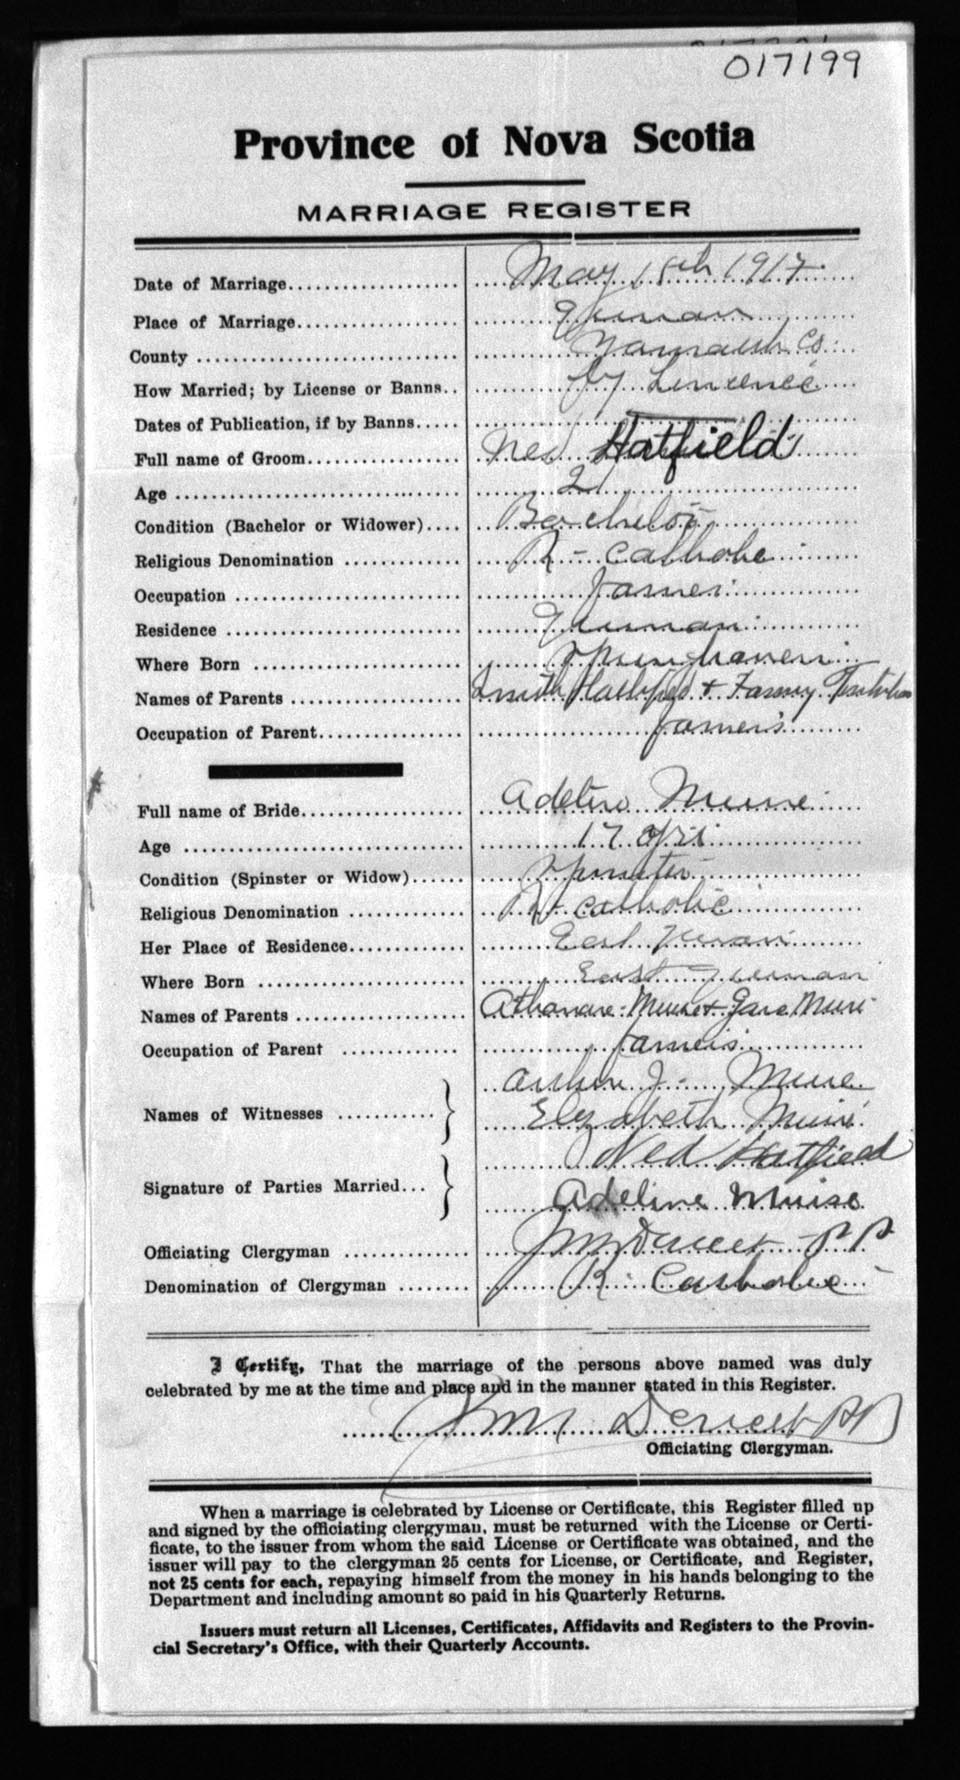 017199
Province of Nova Scotia
MARRIAGE REGISTER
Date of Marriage May 18th 1917
Place of Marriage
County Yarmouth Co
How Married; by License or Banns by
Dates of Publication, if by Banns
Full name of Groom Ned Hatfield
Age 21
Condition (Bachelor or Widower) Bachelor
Religious Denomination R - Catholic
Occupation Farmer
Residence
Where Born
Names of Parents Smith Hatfield + Fanny
Occupation of Parent farmers
Full name of Bride Adeline Muise
Age 17
Condition (Spinster or Widow) Spinster
Religious Denomination R - Catholic
Her Place of Residence East
Where Born East
Names of Parents Athanase Muise +
Occupation of Parent farmers
Arthur J - Muise
Names of Witnesses
Elizabeth Muise
Ned Hatfield
Signature of Parties Married
Adeline Muise
Officiating Clergyman P P
Denomination of Clergyman R. Catholic
I Certify, That the marriage of the persons above named was duly
celebrated by me at the time and place and in the manner stated in this Register.
Officiating Clergyman.
When a marriage is celebrated by License or Certificate, this Register filled up
and signed by the officiating clergyman, must be returned with the License or Certi-
ficate, to the issuer from whom the said License or Certificate was obtained, and the
issuer will pay to the clergyman 25 cents for License, or Certificate, and Register,
not 25 cents for each, repaying himself from the money in his hands belonging to the
Department and including amount so paid in his Quarterly Returns.
Issuers must return all Licenses, Certificates, Affidavits and Registers to the Provin-
cial Secretary's Office, with their Quarterly Accounts.